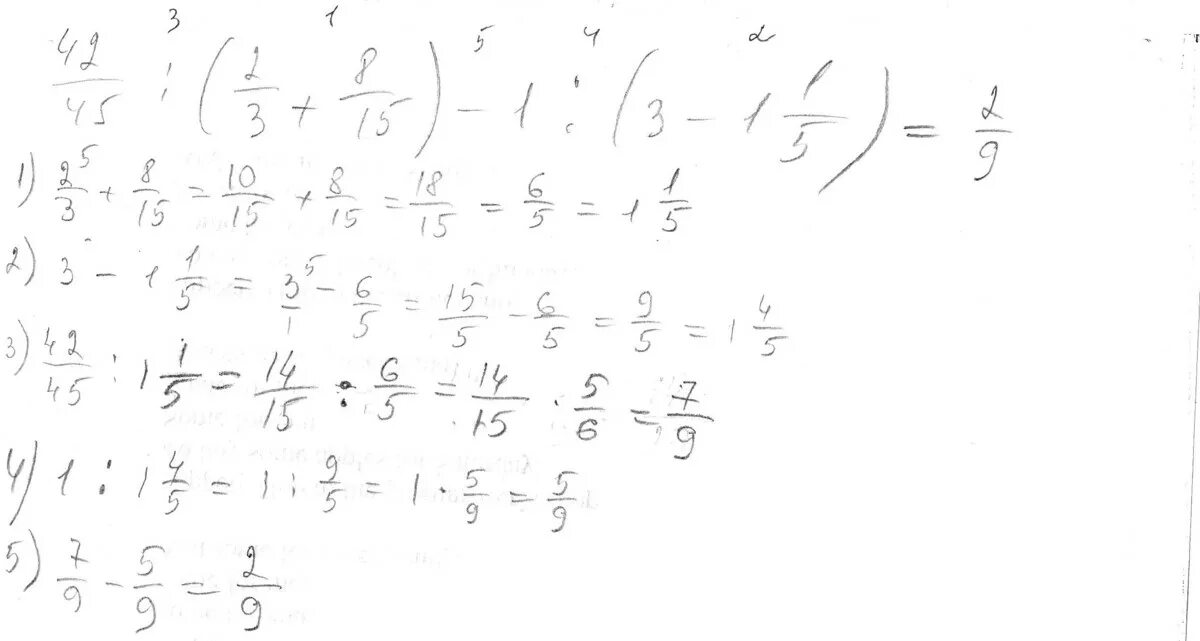 3 1 5 4 2
42/45 : (2/3 + 8/15) - 1 : (3 - 1 1/5) = 2/9
1) 2/3 ⁵ + 8/15 = 10/15 + 8/15 = 18/15 = 6/5 = 1 1/5
2) 3 - 1 1/5 = 3/1 ⁵ - 6/5 = 15/5 - 6/5 = 9/5 = 1 4/5
3) 42/45 : 1 1/5 = 14/15 : 6/5 = 14/15 · 5/6 = 7/9
4) 1 : 1 4/5 = 1 : 9/5 = 1 · 5/9 = 5/9
5) 7/9 - 5/9 = 2/9